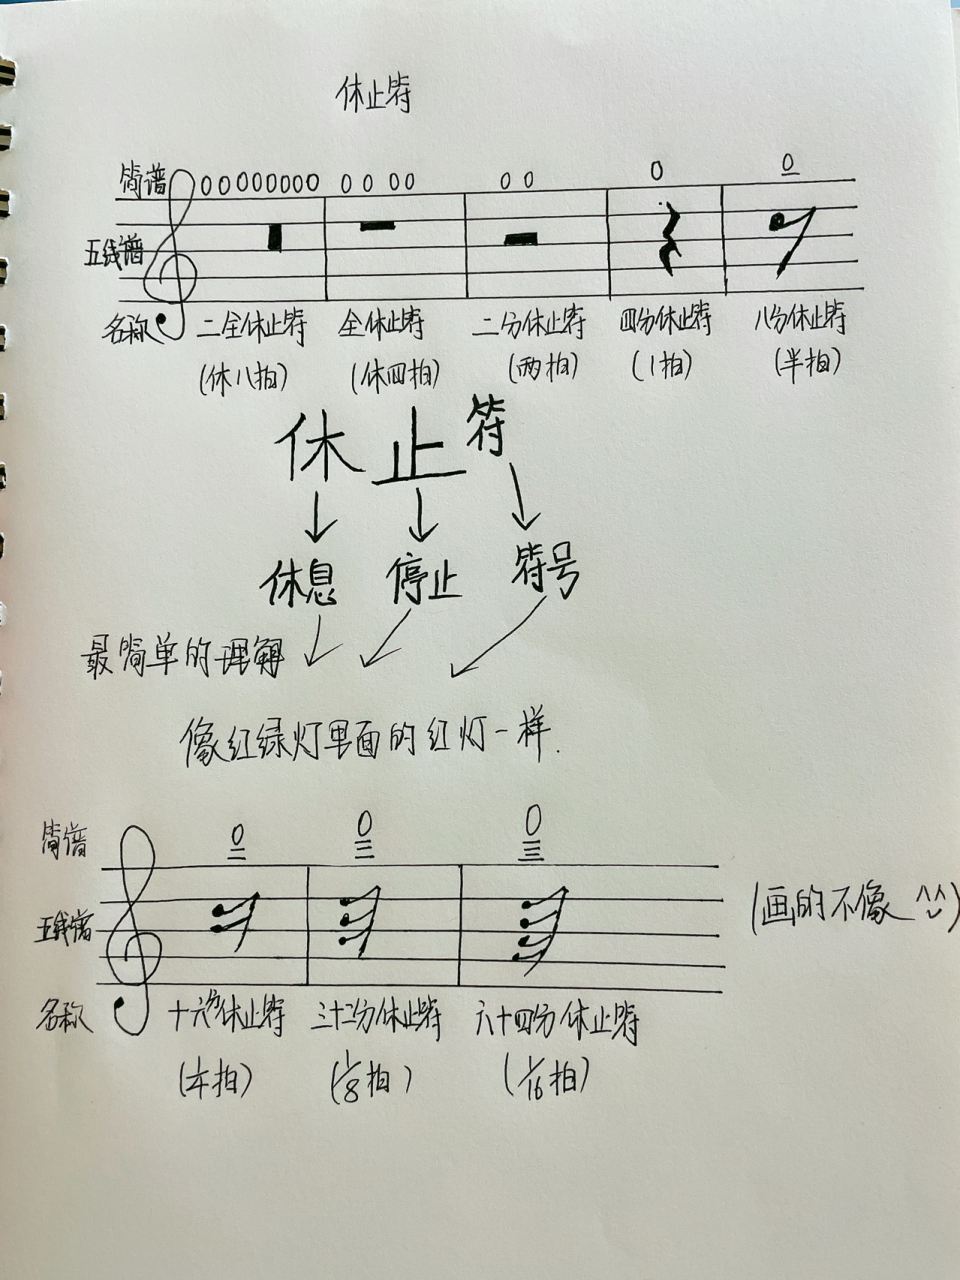 休止符
简谱 0 0 0 0 0 0 0 0 0 0 0 0 0 0 0 0
五线谱
名称 二全休止符 全休止符 二分休止符 四分休止符 八分休止符
(休八拍) (休四拍) (两拍) (1拍) (半拍)
休止符
休息 停止 符号
最简单的理解
像红绿灯里面的红灯一样.
简谱 0 0 0
五线谱 (画的不像 ^^)
名称 十六分休止符 三十二分休止符 六十四分休止符
(1/4拍) (1/8拍) (1/16拍)